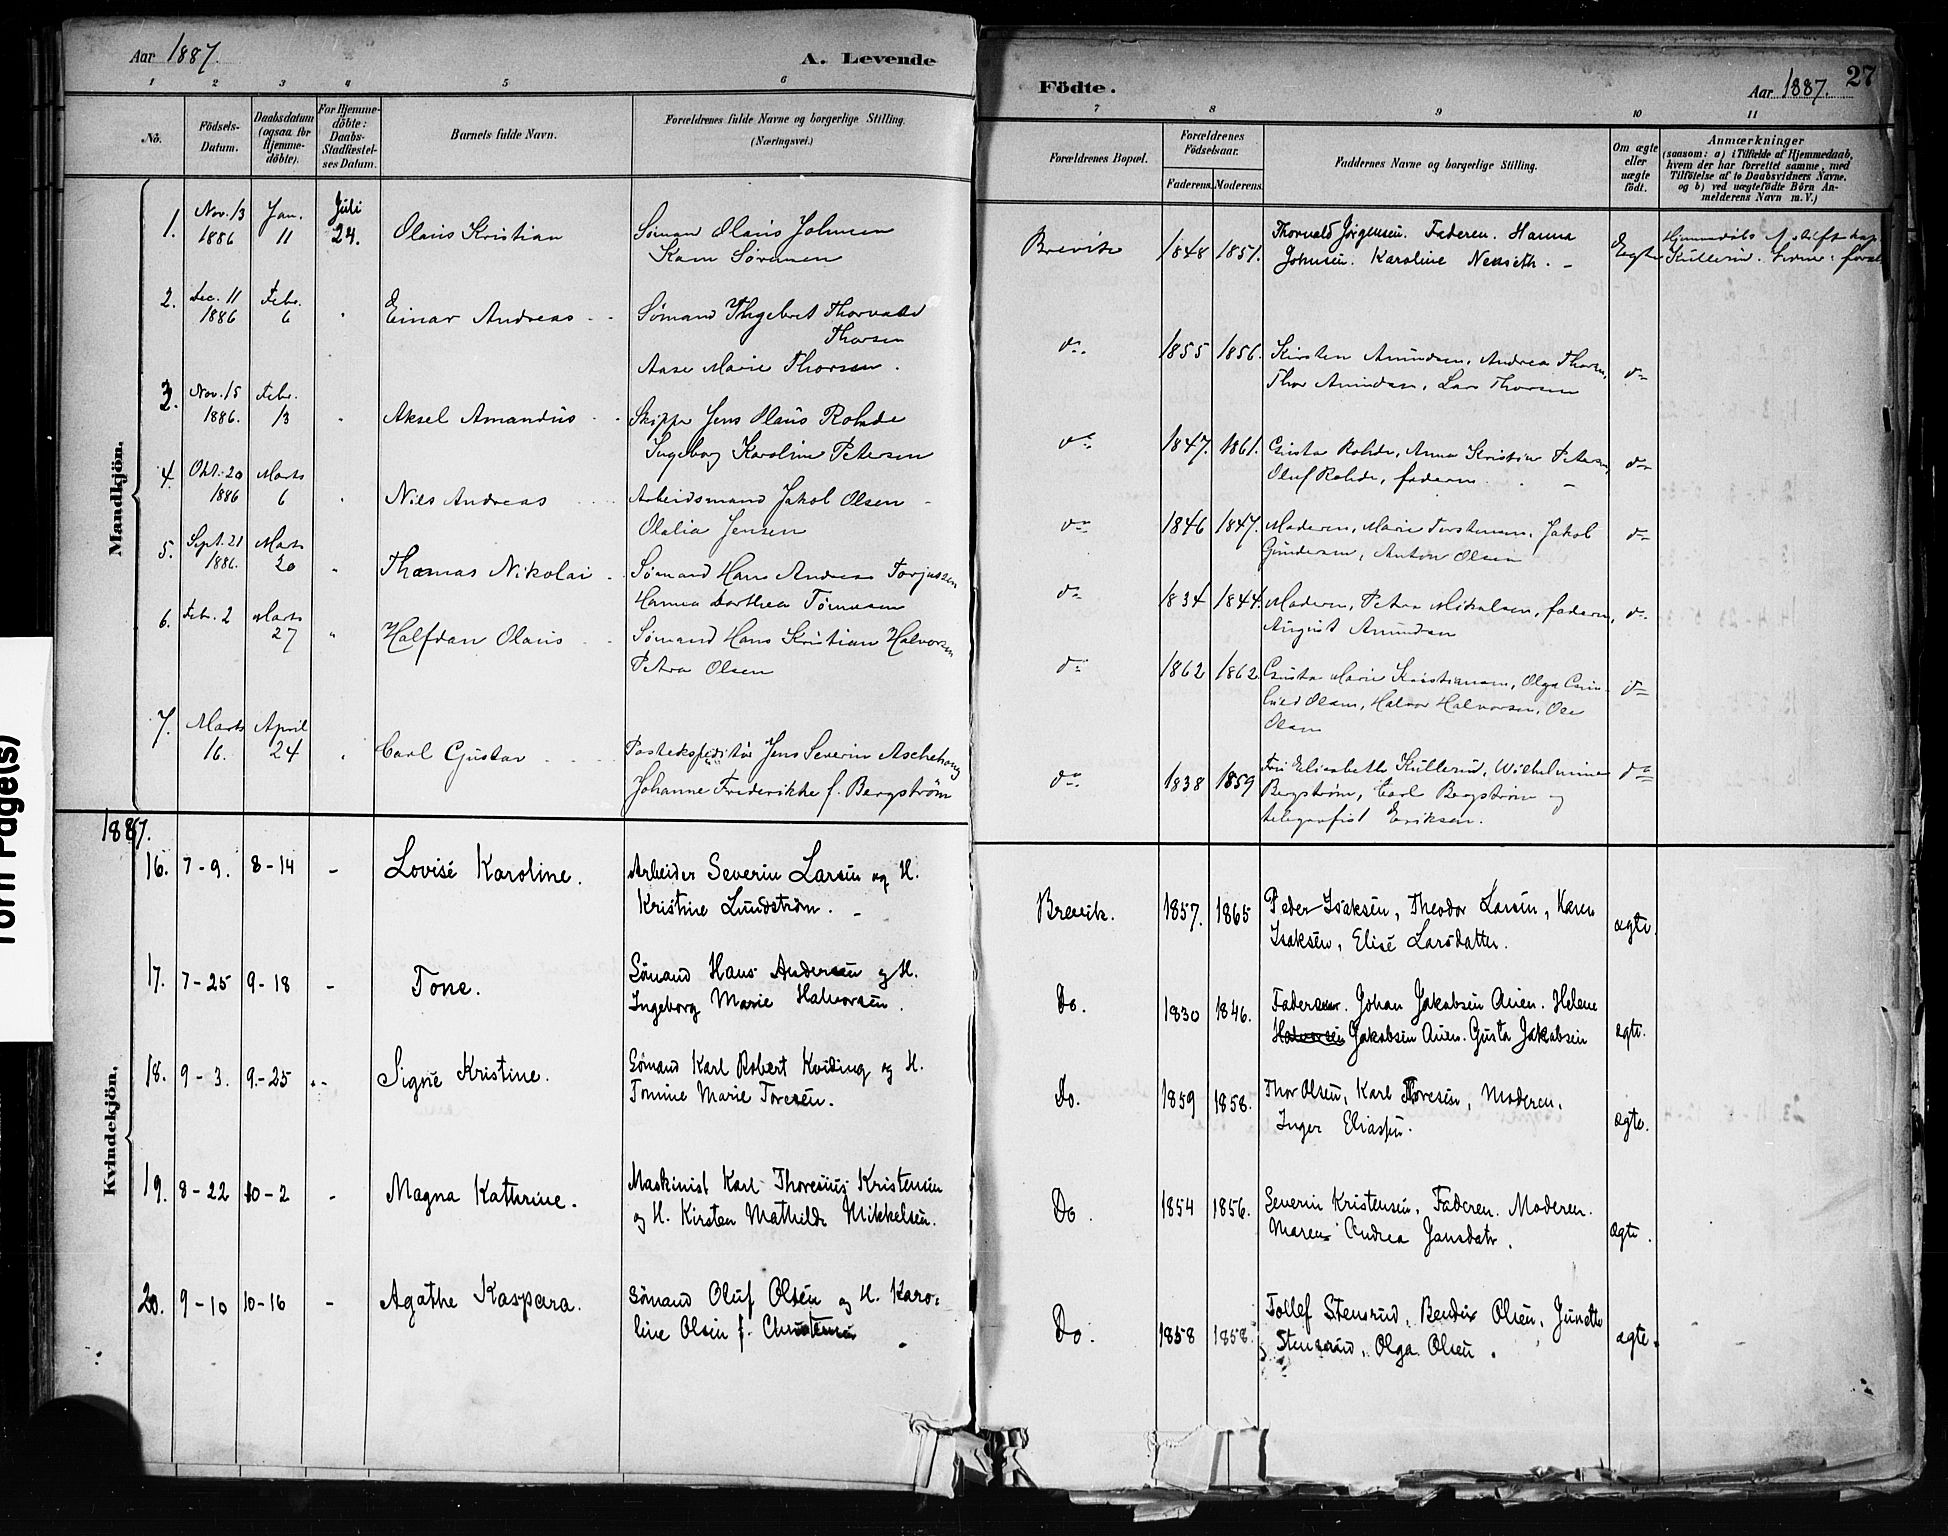 Aar 1887.
A. Levende
Födte.
Aar 1887.
27
1 2 3 4 5 6 7 8 9 10 11
No.
Födsels-
Datum.
Daabsdatum
(ogsaa for
Hjemme-
döbte).
For Hjemme-
döbte:
Daabs-
Stadfæstel-
ses Datum.
Barnets fulde Navn.
Forældrenes fulde Navne og borgerlige Stilling.
(Næringsvei.)
Forældrenes Bopæl.
Forældrenes
Födselsaar.
Faderens. Moderens.
Faddernes Navne og borgerlige Stilling.
Om ægte
eller
uægte
født.
Anmærkninger
(saasom: a) i Tilfælde af Hjemmedaab,
hvem der har forrettet samme, med
Tilföielse af to Daabsvidners Navne.
og b) ved uægtefödte Börn An-
melderens Navn m. V.)
Mandkjön.
1. Nov. 13 1886 Jan. 11 Juli 24. Olaus Kristian Sömand Olaus Johnsen
Sörensen
Brevik 1848 1851. Thorvald Jörgensen. Faderen. Hanna
Johnsen. Karoline Nenseth. – Ægte
2. Dec. 11 1886 Febr. 6 " Einar Andreas Sömand Thorvald
Thorsen
Aase Marie Thorsen.
do. 1855 1856. Kirsten Amundsen, Andrea Thorsen,
Thor Amundsen, Lars Thorsen do
3. Nov. 15 1886. Febr. 13 " Aksel Amandus Skipper Jens Olaus Rohde
Ingeborg Karoline Petersen
do 1847. 1861. Gusta Rohde, Anna Kristine Petersen,
Oluf Rohde, faderen. do
4. Okt. 20 1886 Marts 6 " Nils Andreas Arbeidsmand Jakob Olsen
Olalia Jensen
do 1846 1847. Moderen, Marie Torstensen, Jakob
Gundersen, Anton Olsen do
5. Sept. 21 1886. Marts 20 " Thomas Nikolai Sömand Hans Andreas Torjussen
Hanna Dorthea Tönnesen
do 1834 1844. Moderen, Petra Mikalsen, faderen,
August Amundsen do
6. Febr. 2 Marts 27 " Halfdan Olaus Sömand Hans Kristian Halvorsen
Petra Olsen
do 1862 1862 Gusta Marie Kristiansen, Olga
Olsen, Halvor Halvorsen, Ole
Olsen do
7. Marts 16. April 24 " Carl Gustav Postekspeditör Jens Severin Aschehoug
Johanne Frederikke f. Bergström
do. 1838 1859 Elisabeth Kullerud, Wilhelmine
Bergström, Carl Bergström og
telegrafist Eriksen. do
1887.
Kvindekjön.
16. 7-9. 8-14 – Lovise Karoline. Arbeider Severin Larsen og H.
Kristine Lundström. –
Brevik. 1857. 1865 Peder Isaksen, Theodor Larsen, Karen
Isaksen, Elise Larsdatter. ægte.
17. 7-25 9-18 – Tone. Sömand Hans Andersen og H.
Ingeborg Marie Halvorsen.
Do. 1830 1846. Faderen. Johan Jakobsen Auen. Helene
Halvorsen Jakobsen Auen. Gusta Jakobsen ægte.
18. 9-3. 9-25 – Signe Kristine. Sömand Karl Robert Kviding og H.
Tomine Marie Toresen.
Do. 1859 1858. Thor Olsen, Karl Toresen, Moderen.
Inger Eliassen. ægte.
19. 8-22 10-2 – Magna Kathrine. Maskinist Karl Thoresius Kristensen
og H. Kirsten Mathilde Mikkelsen.
Do. 1854 1856. Severin Kristensen, Faderen. Moderen.
Maren Andrea Jansdatr. ægte.
20. 9-10 10-16 – Agathe Kaspara. Sömand Oluf Olsen og H. Karo-
line Olsen f. Christensen
Do. 1858 1858. Tollef Stensrud, Bendix Olsen, Junette
Stensrud, Olga Olsen. ægte.
Torn Page(s)